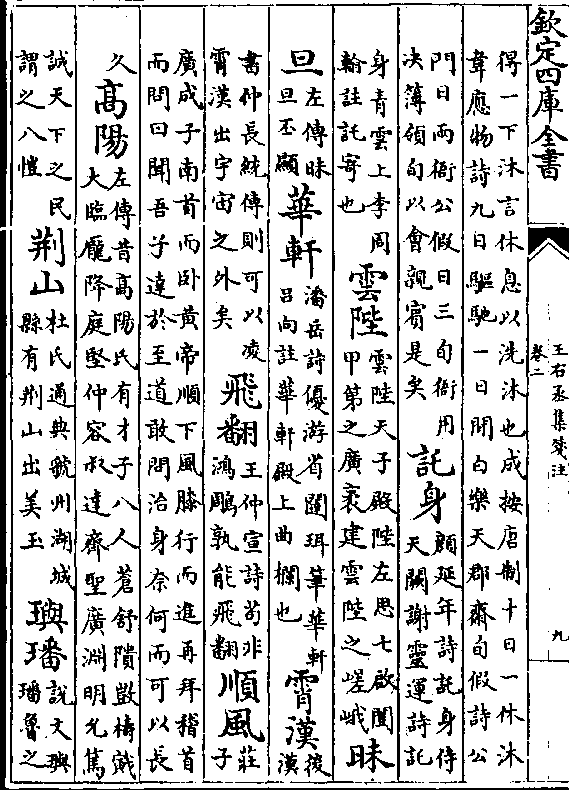 欽定四庫全書
王右丞集箋注
卷二
九
得一下沐言休息以洗沐也成按唐制十日一休沐
韋應物詩九日驅馳一日閒白樂天郡齋旬假詩公
門日兩衙公假日三旬衙用
决簿領旬以會親賓是矣
託身
顔延年詩託身侍
天闕謝靈運詩託
身青雲上李周
翰註託寄也
雲陛
雲陛天子殿陛左思七啟閶
甲第之廣袤建雲陛之嵯峨
昧
旦
左傳昧
旦丕顯
華軒
潘岳詩優游省闥珥筆華軒
吕向註華軒殿上曲欄也
霄漢
後
漢
書仲長統傳則可以凌
霄漢出宇宙之外矣
飛翻
王仲宣詩苟非
鴻鵰孰能飛翻
順風
莊
子
廣成子南首而卧黄帝順下風膝行而進再拜稽首
而問曰聞吾子達於至道敢問治身奈何而可以長
久
高陽
左傳昔高陽氏有才子八人蒼舒隤敳檮戭
大臨龎降庭堅仲容叔達齊聖廣淵明允篤
誠天下之民
謂之八愷
荆山
杜氏通典虢州湖城
縣有荆山出美玉
璵璠
說文璵
璠魯之